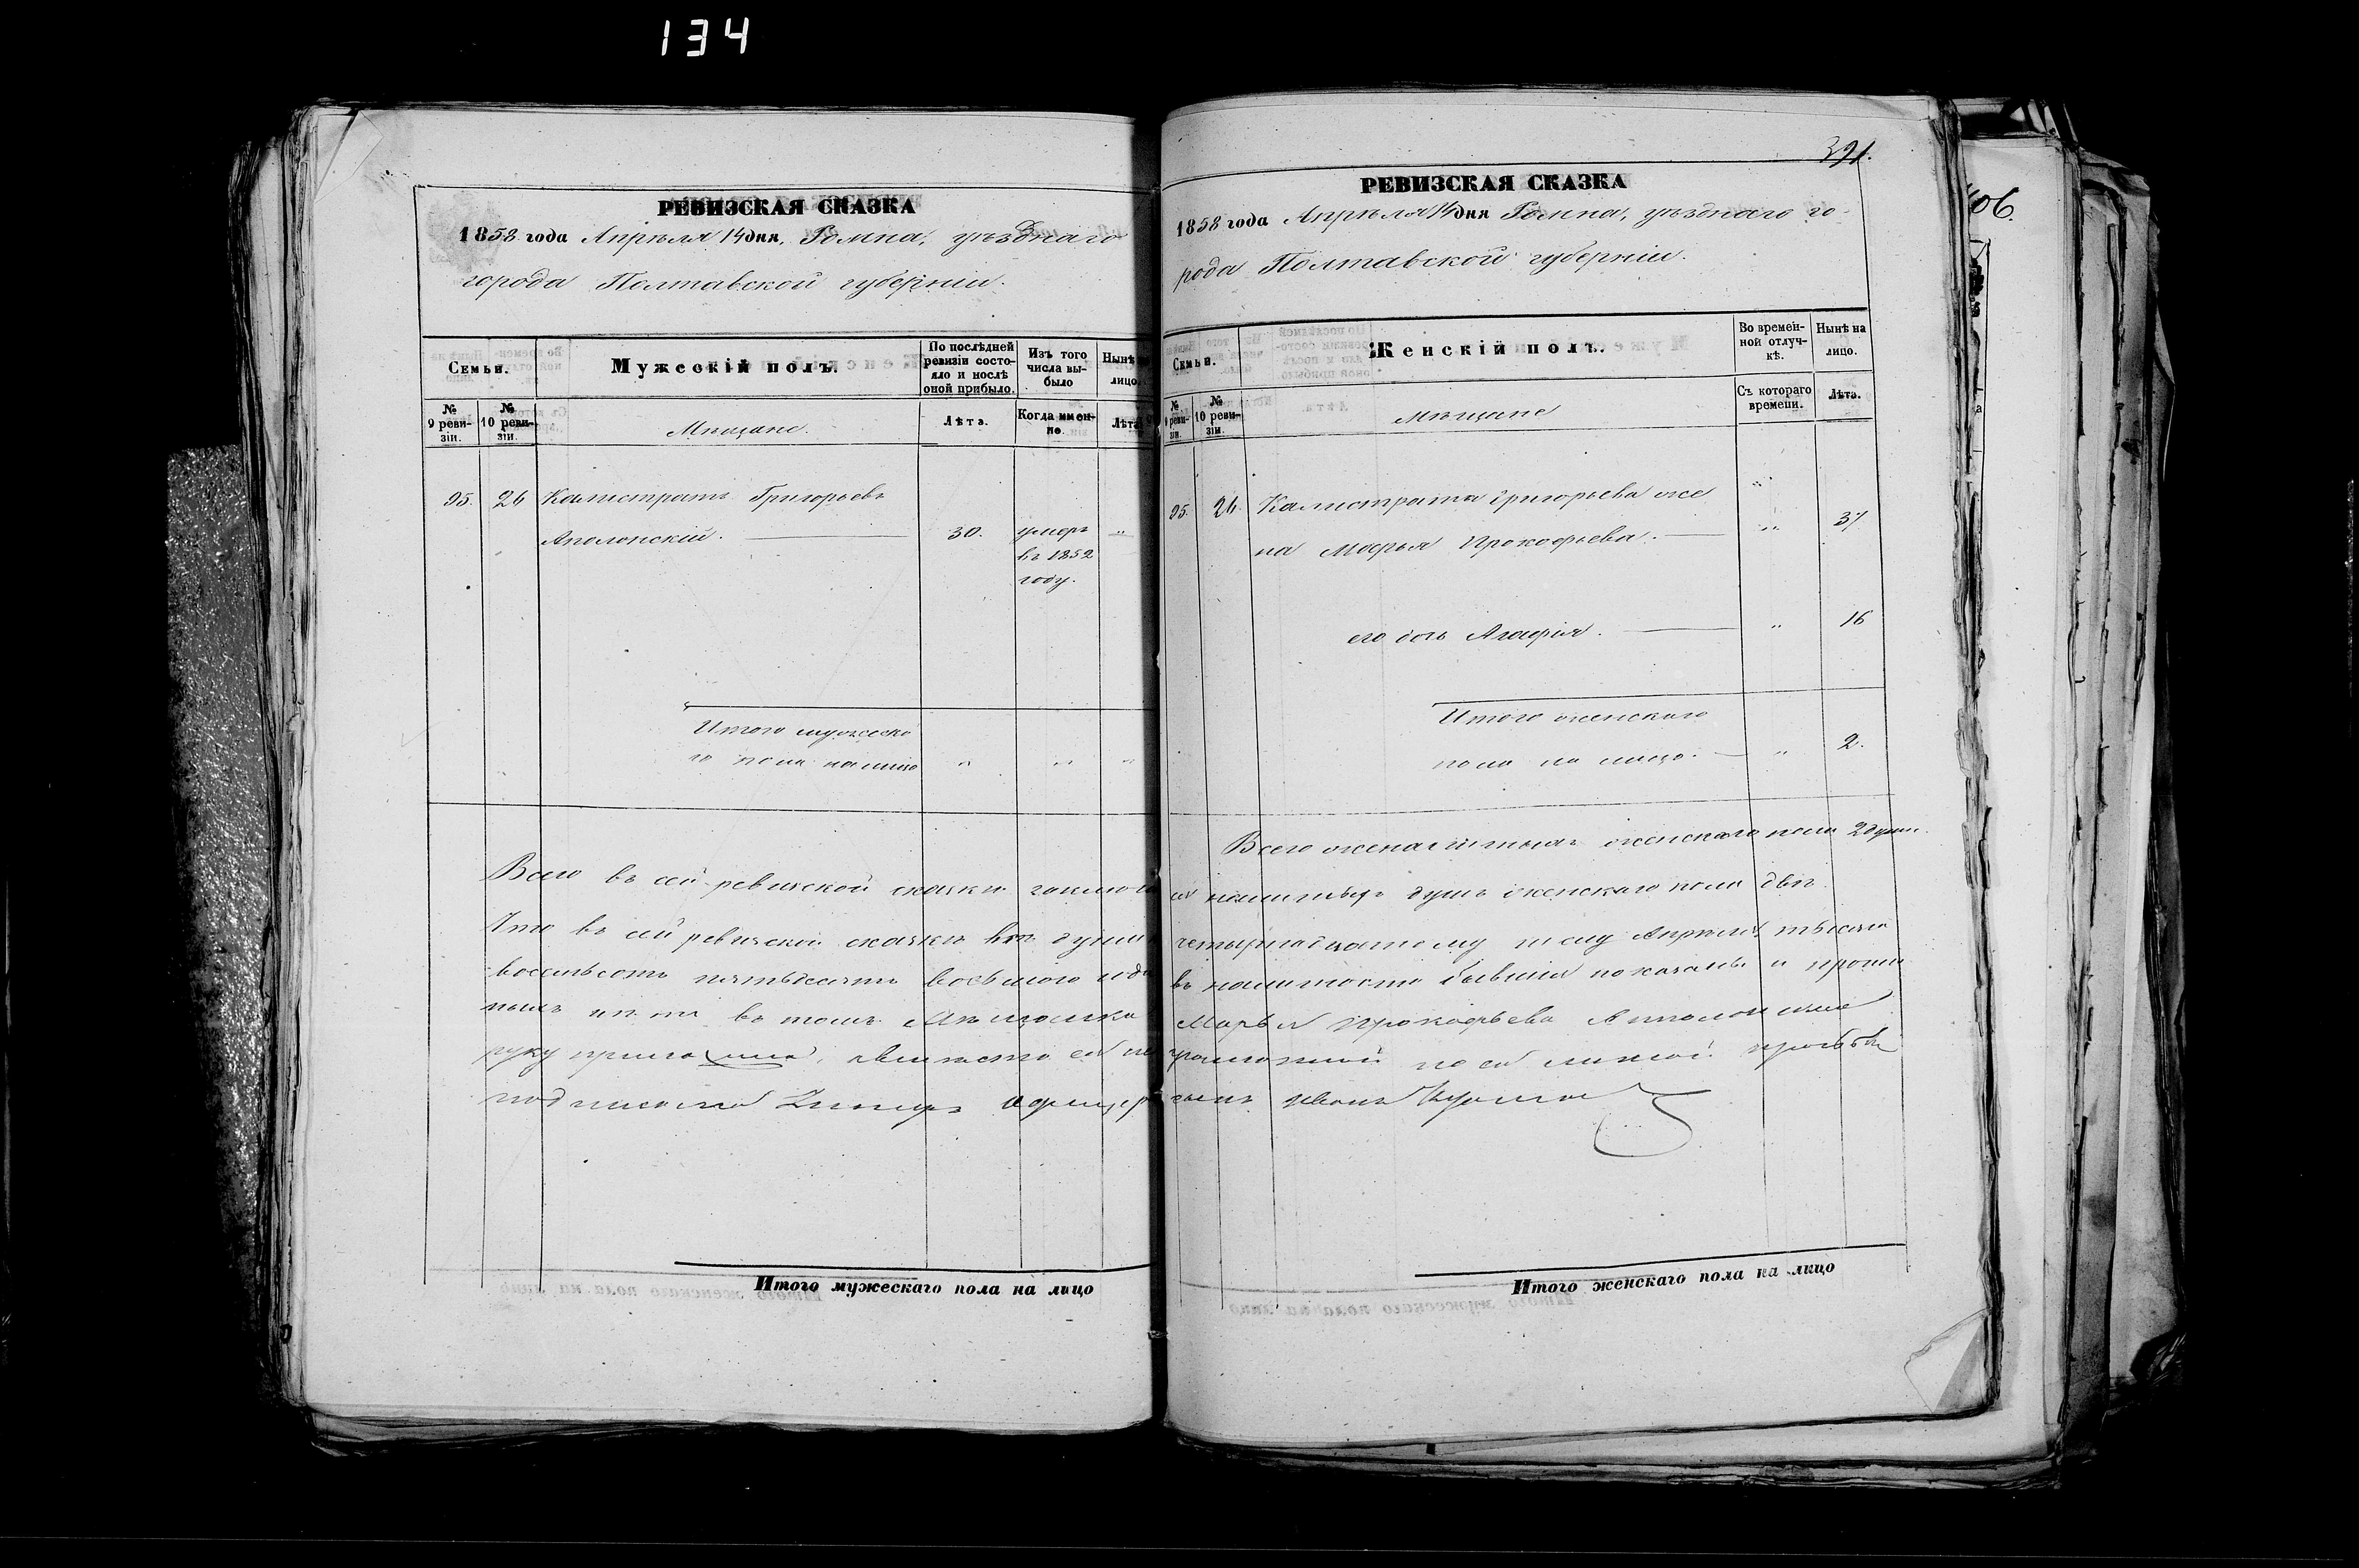 134
РЕВИЗСКАЯ СКАЗКА
1858 года Апрѣля 14 дня, Ромна, уѣзднаго
города Полтавской губерніи.
Семьи.
Мужескій полъ.
По послѣдней ревизіи состояло и послѣ оной прибыло.
Изъ того числа выбыло
Нынѣ
лицо.
№ 9 ревизіи.
№ 10 ревизіи.
Мѣщане.
Лѣта.
Когда именно.
Лѣта
95. 26 Калистратъ Григорьевъ
Аполонскій. 30. умеръ „
въ 1852
году.
Итого мужеско
го пола налицо „ „ „
Всего въ сей ревизской сказки
Что въ сей ревизской сказкѣ всѣ души
восемьсотъ пятьдесятъ восьмаго года
въ томъ Мѣщанка
руку
Итого мужескаго пола на лицо
391.
РЕВИЗСКАЯ СКАЗКА
1858 года Апрѣля 14 дня Ромна, уѣзднаго го-
рода Полтавской губерніи.
Семьи.
Женскій полъ.
Во временной отлучкѣ.
Нынѣ на лицо.
№ 9 ревизіи.
№ 10 ревизіи.
Мѣщане
Съ котораго времени.
Лѣта.
95. 26. Калистрата Григорьева же „
на Марья Прокофьева. „ 37
его дочь Агафія. „ 16
Итого женскаго
пола на лицо. „ 2.
Всего женскаго пола 2 души.
наличныхъ душъ женскаго пола двѣ.
четырнадцатому числу Апрѣля тысяча
въ наличности бывшія показаны и
Марья Прокофьева
по ея личной прозьбѣ
сынъ Иванъ
Итого женскаго пола на лицо
406.